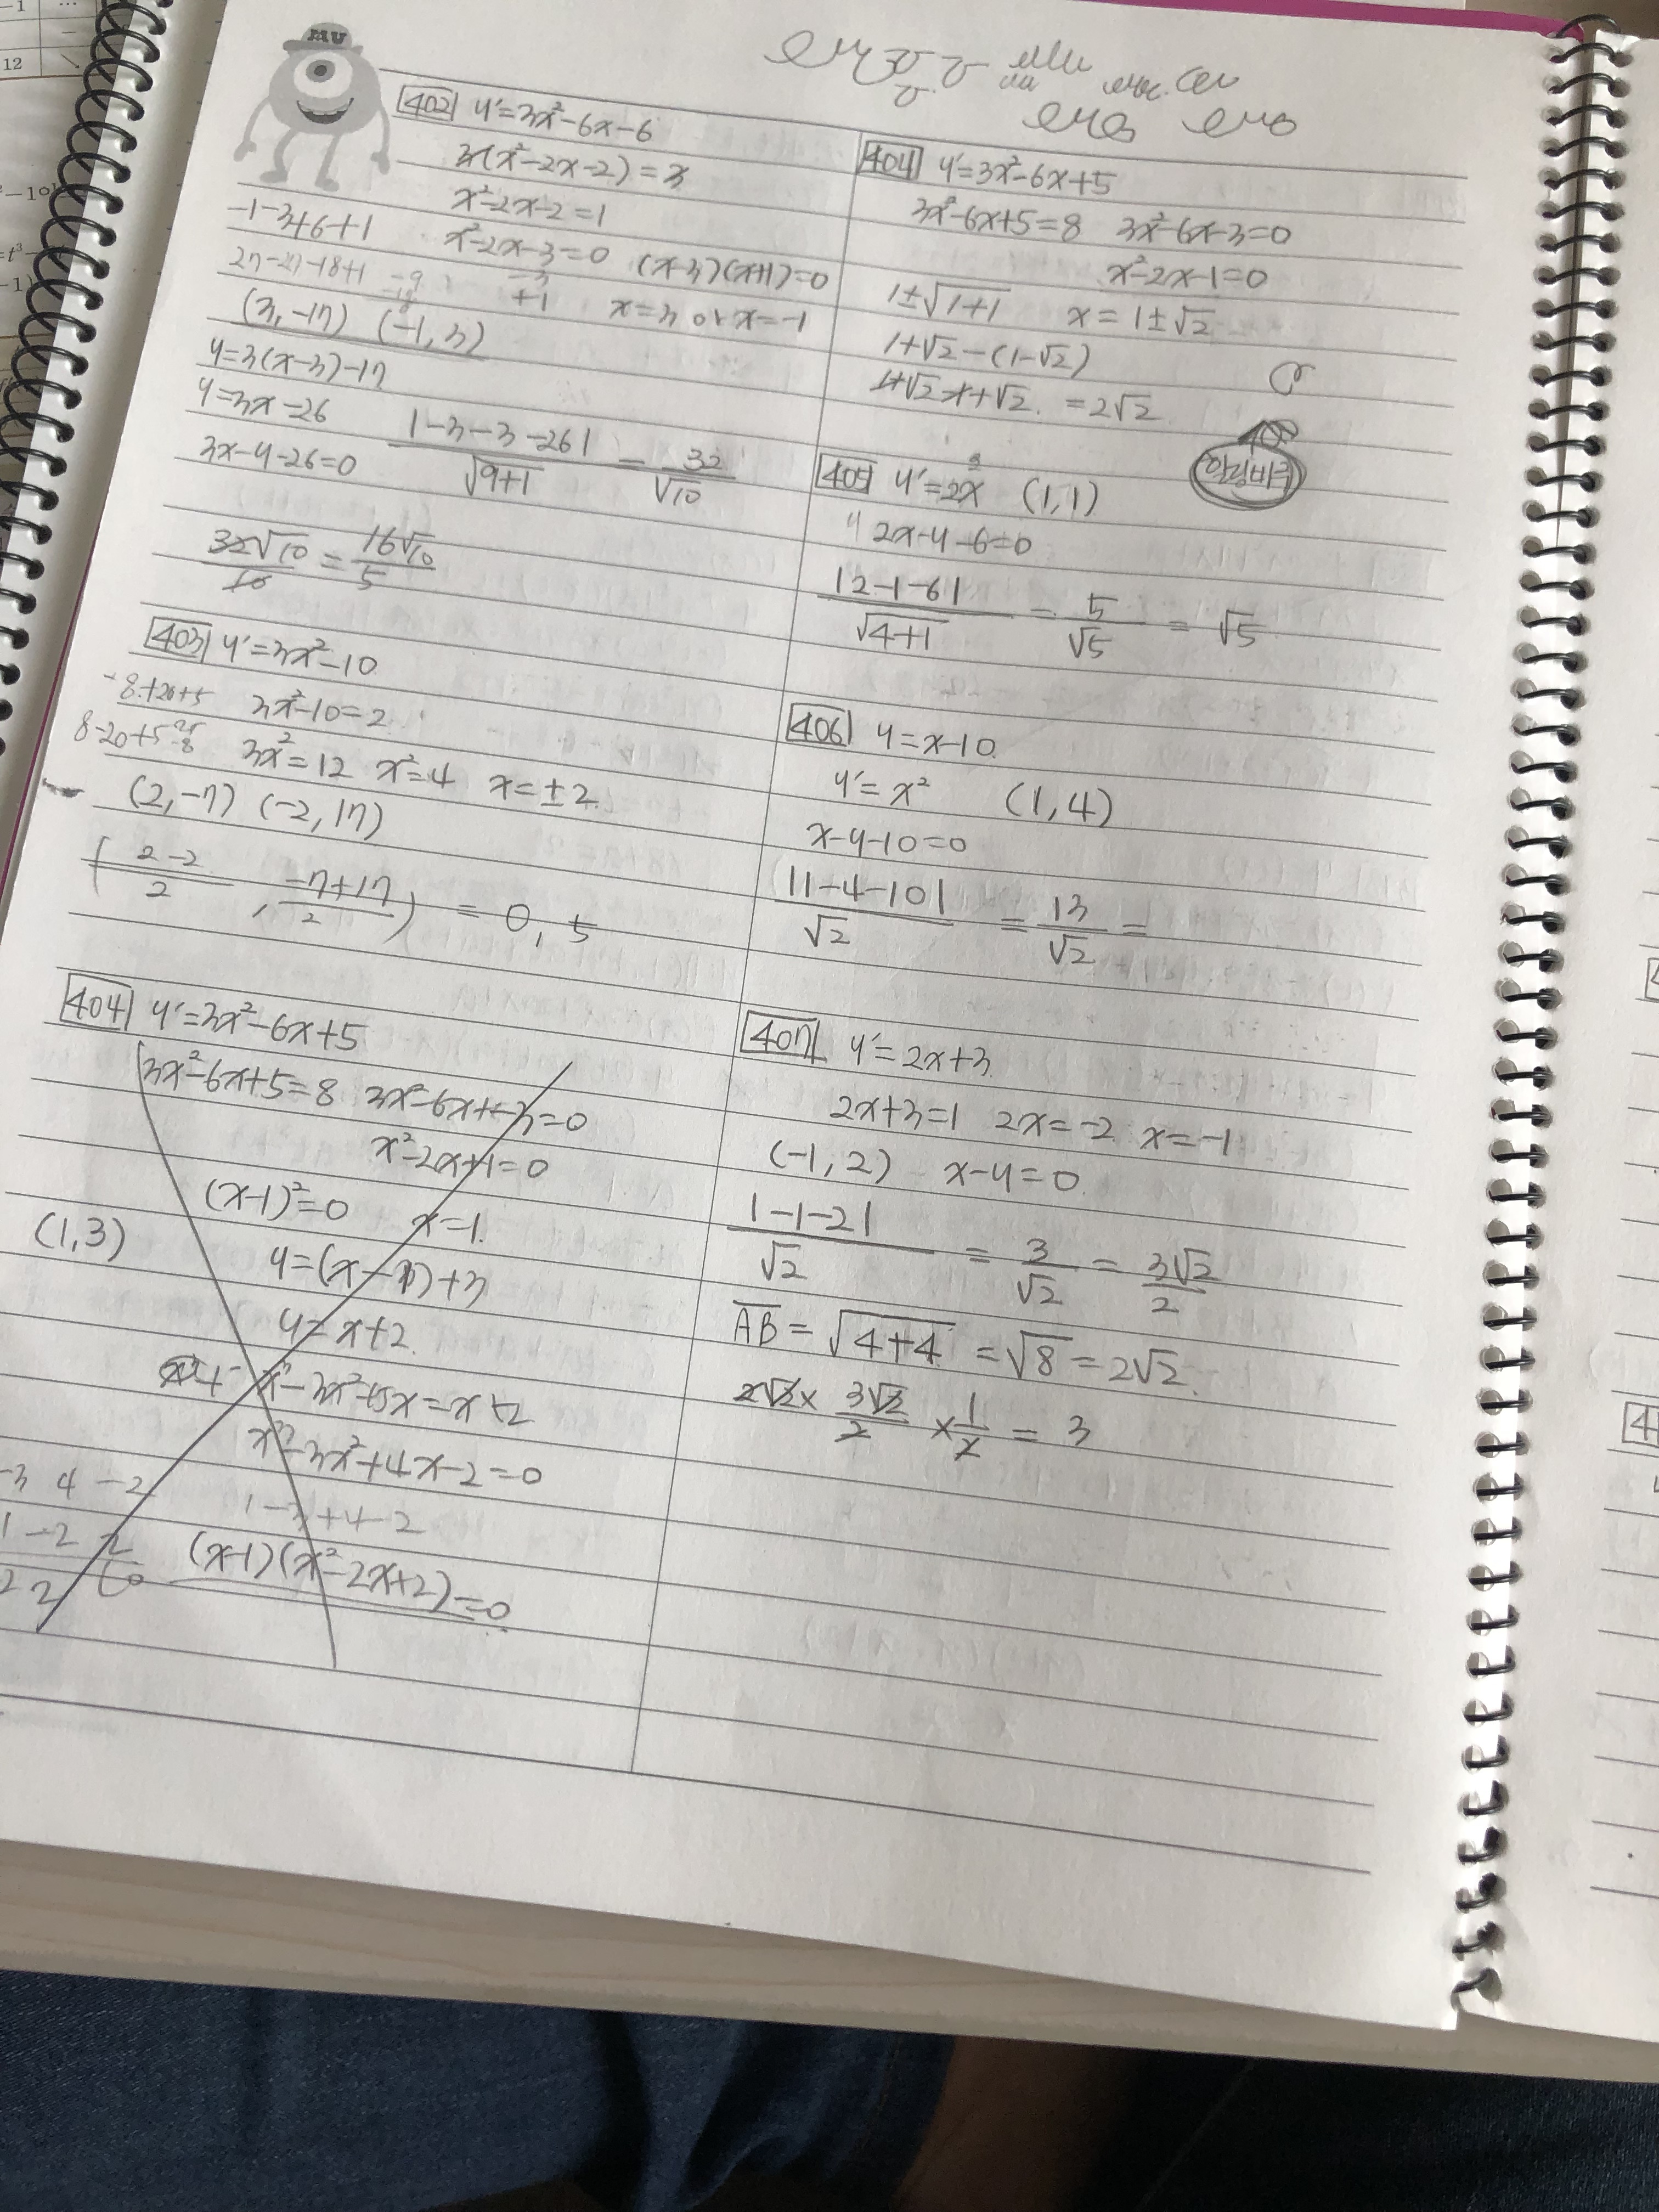 MU
402 y'=3x²-6x-6
3(x²-2x-2)=3
x²-2x-2=1
-1-3+6+1 x²-2x-3=0 (x-3)(x+1)=0
27-27-18+1 -9 -18 -3 +1 x=3 or x=-1
(3,-17) (-1,3)
y=3(x-3)-17
y=3x-26
3x-y-26=0 |-3-3-26|/√9+1 = 32/√10
32√10/10 = 16√10/5
403 y'=3x²-10
-8+20+5 3x²-10=2
8-20+5 25-8 3x²=12 x²=4 x=±2
(2,-7) (-2,17)
(2-2/2, -7+17/2) = 0, 5
404 y'=3x²-6x+5
3x²-6x+5=8 3x²-6x+-3=0
x²-2x+1=0
(x-1)²=0 x=1
(1,3) y=(x-1)+3
y=x+2
x³-3x²+5x=x+2
x³-3x²+4x-2=0
-3 4 -2 1-3+4-2
1 -2 2 (x-1)(x²-2x+2)=0
2 2 0
404 y'=3x²-6x+5
3x²-6x+5=8 3x²-6x-3=0
x²-2x-1=0
1±√1+1 x=1±√2
1+√2-(1-√2)
1+√2-1+√2 =2√2
405 y'=2x (1,1)
2x-y-6=0
|2-1-6|/√4+1 = 5/√5 = √5
406 y=x-10
y'=x² (1,4)
x-y-10=0
|1-4-10|/√2 = 13/√2 =
407 y'=2x+3
2x+3=1 2x=-2 x=-1
(-1,2) x-y=0
|-1-2|/√2 = 3/√2 = 3√2/2
AB=√4+4 =√8=2√2
2√2× 3√2/2 ×1/2 = 3